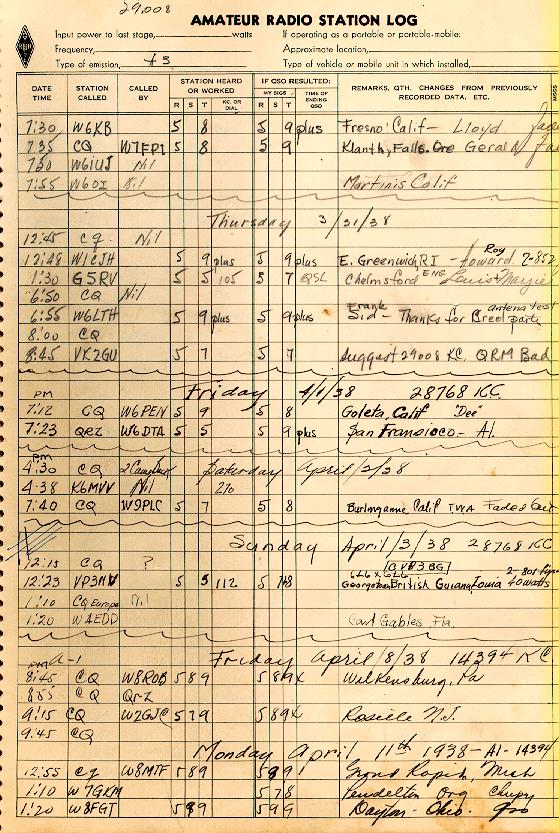 29,008
AMATEUR RADIO STATION LOG
Input power to last stage, watts If operating as a portable or portable-mobile:
Frequency, Approximate location,
Type of emission, A3 Type of vehicle or mobile unit in which installed,
DATE TIME STATION CALLED CALLED BY STATION HEARD OR WORKED R S T KC. OR DIAL IF QSO RESULTED: MY SIGS R S T TIME OF ENDING QSO REMARKS, QTH. CHANGES FROM PREVIOUSLY RECORDED DATA, ETC.
7:30 W6KB 5 8 5 9 plus Fresno Calif - Lloyd
7:35 CQ W7FPI 5 8 5 9 Klanth, Falls. Ore Gerald
7:50 W6IUJ Nil
7:55 W6OI Nil Martinis Calif
Thursday 3/31/38
12:45 CQ Nil
12:48 W1CJH 5 9 plus 5 9 plus E. Greenwich, RI - Howard Roy
1:30 G5RV 5 5 105 5 7 QSL Chelmsford ENG Louis
6:50 CQ Nil
6:55 W6LTH 5 9 plus 5 9 plus Frank Sid - Thanks for antena test
8:00 CQ
8:45 VK2GU 5 7 5 7 Suggast 29008 KC, QRM Bad
PM Friday 4/1/38 28768 KC
7:12 CQ W6PEN 5 9 5 8 Goleta, Calif "Dee"
7:23 QRZ W6DTA 5 5 5 9 plus San Fransioco - Al.
PM
4:30 CQ Saturday April/2/38
4:38 K6MVV Nil 270
7:40 CQ W9PLC 5 7 5 8 Burlingame Calif TWA Faded Out
Sunday April/3/38 28768 KC
12:15 CQ ?
12:23 VP3NV 5 5 112 5 7/8 Georgetown British Guiana Louia 40 watts
1:10 CQ Europe Nil
1:20 W4EDD Coral Gables, Fla.
PM A-1 Friday April/8/38 14394 KC
8:45 CQ W8ROB 5 8 9 5 8 9X Wilkensburg, Pa
8:55 CQ QRZ
9:15 CQ W2GJC 5 7 9 5 8 9X Roselle N.J.
9:45 CQ
Monday April 11th 1938 - A1 - 14394
12:55 CQ W8MTF 5 8 9 5 9 9 Grand Rapids, Mich
1:10 W7GKM 5 7 8 Pendelton Org
1:20 W8FGT 5 8 9 5 9 9 Dayton - Ohio.